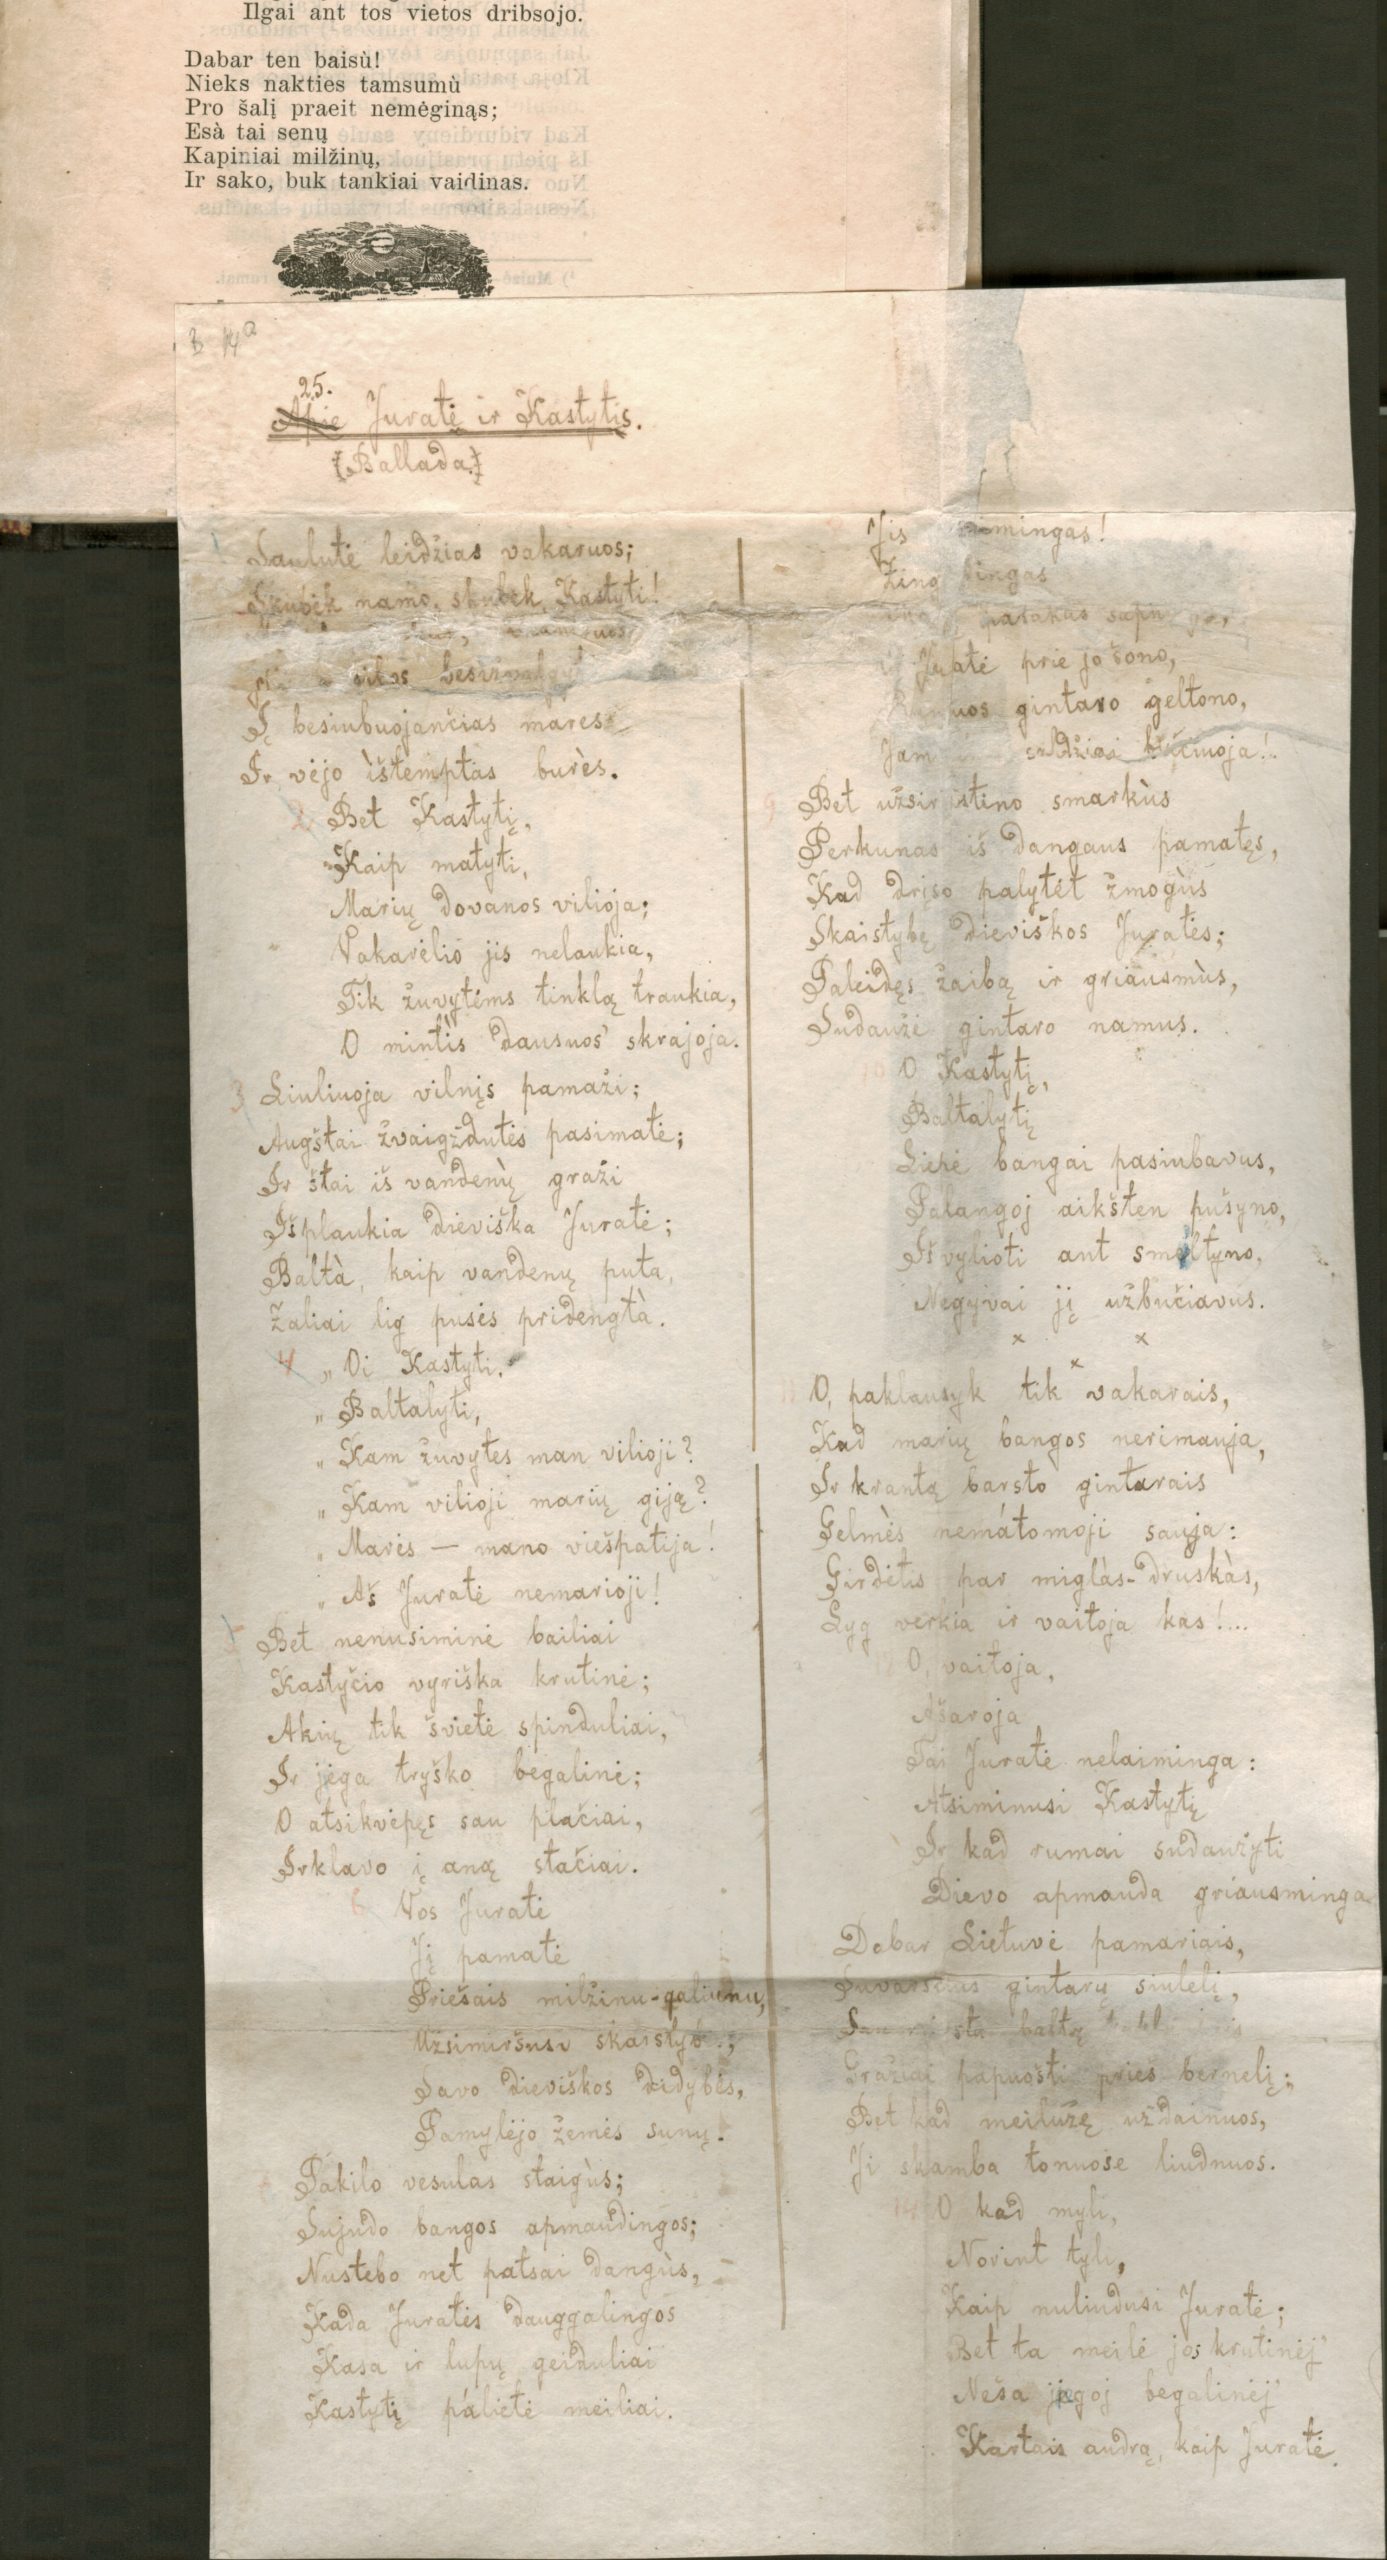 Ilgai ant tos vietos dribsojo.
Dabar ten baisù!
Nieks nakties tamsumù
Pro šalį praeit nemėginąs;
Esà tai senų
Kapiniai milžinų,
Ir sako, buk tankiai vaidinas.
B 14a
25.
Apie Juratė ir Kastytis.
(Ballada.)
Saulutė leidžias vakaruos;
Skubėk namo, skubėk, Kastyti!
Į besiubuojančias mares
Ir vėjo ìštemptas burès.
2 Bet Kastytį,
Kaip matyti,
Marių dovanos vilioja;
Vakarėlio jis nelaukia,
Tik žuvytėms tinklą traukia,
O mintìs dausuos' skrajoja.
3 Liuliuoja vilnįs pamaži;
Augštai žvaigždutės pasimatė;
Ir štai iš vandenų̀ graži
Išplaukia dieviška Juratė;
Baltà, kaip vandenų puta,
Žaliai lig pusės pridengtà.
4 „Oi Kastyti,
„Baltalyti,
„Kam žuvytes man vilioji?
„Kam vilioji marių giją?
„Marės — mano viešpatija!
„Aš Juratė nemarioji!
5 Bet nenusiminė bailiai
Kastyčio vyriška krutinė;
Akių tik švietė spinduliai,
Ir jėga tryško begalinė;
O atsikvėpęs sau plačiai,
Irklavo į aną stačiai.
6 Vos Juratė
Jį pamatė
Priešais milžinu-galiunu,
Užsimiršusi
Savo dieviškos didybės,
Pamylėjo žemės sunų.
Pakilo vesulas staigùs;
Sujudo bangos apmaudingos;
Nustebo net patsai dangùs,
Kada Juratės dauggalingos
Kasa ir lupų geiduliai
Kastytį palietė meiliai.
Jis
Juratė prie jo šono,
gintaro geltono,
Jam
9 Bet užsirustino smarkùs
Perkunas iš dangaus pamatęs,
Kad drįso palytėt žmogùs
Skaistybę dieviškos Juratės;
Paleidęs žaibą ir griausmùs,
Sudaužė gintaro namus.
10 O Kastytį,
Baltalytį
Liepė bangai pasiubavus,
Palangoj aikšten pušyno,
Išvylioti ant smėltyno,
Negyvai jį užbučiavus.
x x
x
11 O, paklausyk tik vakarais,
Kad marių bangos nerimauja,
Ir krantą barsto gintarais
Gelmės nemátomoji sauja:
Girdėtis par miglàs-druskàs,
Lyg verkia ir vaitoja kas!...
12 O, vaitoja,
Ašaroja
Tai Juratė nelaiminga:
Atsiminusi Kastytį
Ir kad rumai sudaužyti
Dievo apmauda griausminga
Dabar Lietuvė pamariais,
Suvarsčius gintarų siulelį,
baltą
Gražiai papuošti prieš bernelį;
Bet kad meilužę uždainuos,
Ji skamba tonuose liudnuos.
14 O kad myli,
Norint tyli,
Kaip nuliudusi Juratė;
Bet ta meilė jos krutinėj'
Neša jiegoj begalinėj'
Kartais audrą, kaip Juratė.